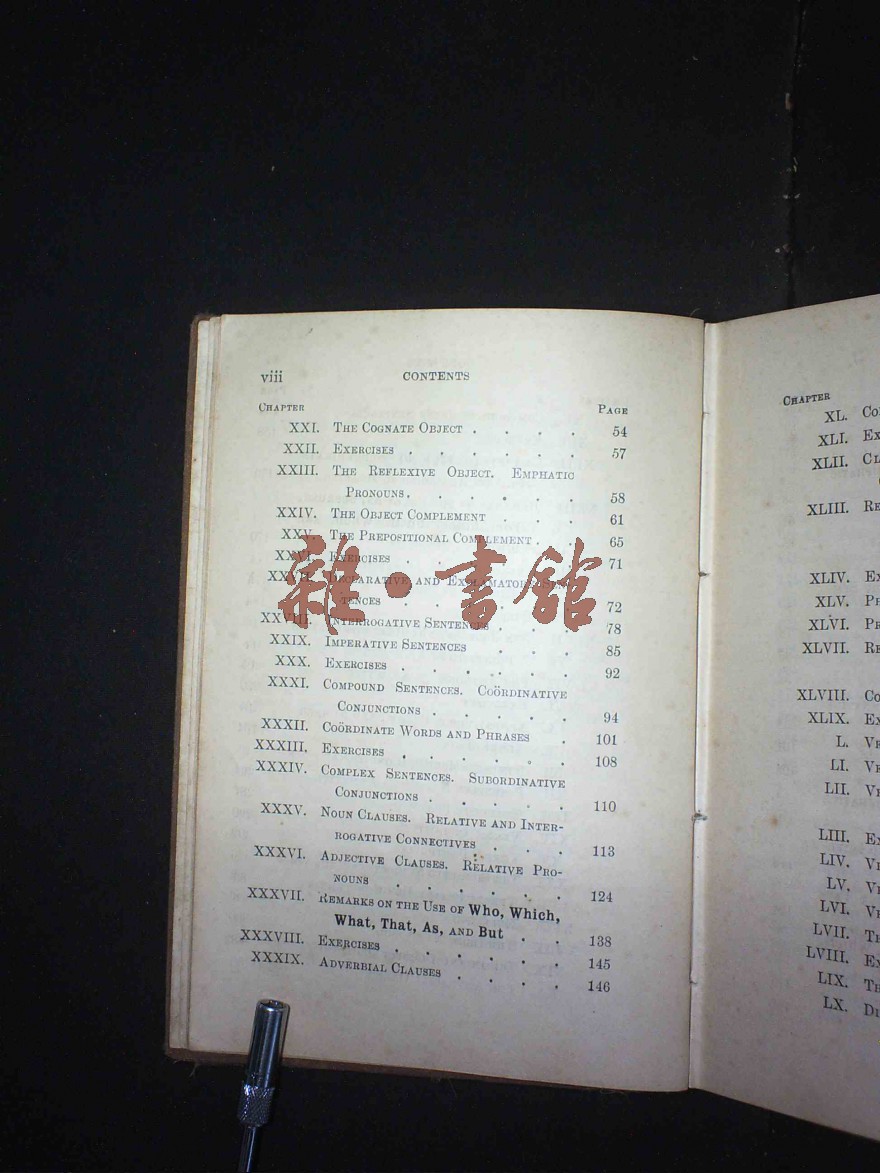 viii CONTENTS
CHAPTER PAGE
XXI. THE COGNATE OBJECT . . . . 54
XXII. EXERCISES . . . . . . 57
XXIII. THE REFLEXIVE OBJECT. EMPHATIC
PRONOUNS. . . . . . 58
XXIV. THE OBJECT COMPLEMENT . . . 61
XXV. THE PREPOSITIONAL COMPLEMENT . . 65
XXVI. EXERCISES . . . . . . 71
XXVII. DECLARATIVE AND EXCLAMATORY SEN-
TENCES . . . . . . 72
XXVIII. INTERROGATIVE SENTENCES . . . 78
XXIX. IMPERATIVE SENTENCES . . . . 85
XXX. EXERCISES . . . . . . 92
XXXI. COMPOUND SENTENCES. COÖRDINATIVE
CONJUNCTIONS . . . . . 94
XXXII. COÖRDINATE WORDS AND PHRASES . 101
XXXIII. EXERCISES . . . . . . 108
XXXIV. COMPLEX SENTENCES. SUBORDINATIVE
CONJUNCTIONS . . . . . 110
XXXV. NOUN CLAUSES. RELATIVE AND INTER-
ROGATIVE CONNECTIVES . . . . 113
XXXVI. ADJECTIVE CLAUSES. RELATIVE PRO-
NOUNS . . . . . . 124
XXXVII. REMARKS ON THE USE OF Who, Which,
What, That, As, AND But . . 138
XXXVIII. EXERCISES . . . . . . 145
XXXIX. ADVERBIAL CLAUSES . . . . 146
雜·書館
CHAPTER
XL.
XLI.
XLII.
XLIII.
XLIV.
XLV.
XLVI.
XLVII.
XLVIII.
XLIX.
L.
LI.
LII.
LIII.
LIV.
LV.
LVI.
LVII.
LVIII.
LIX.
LX.